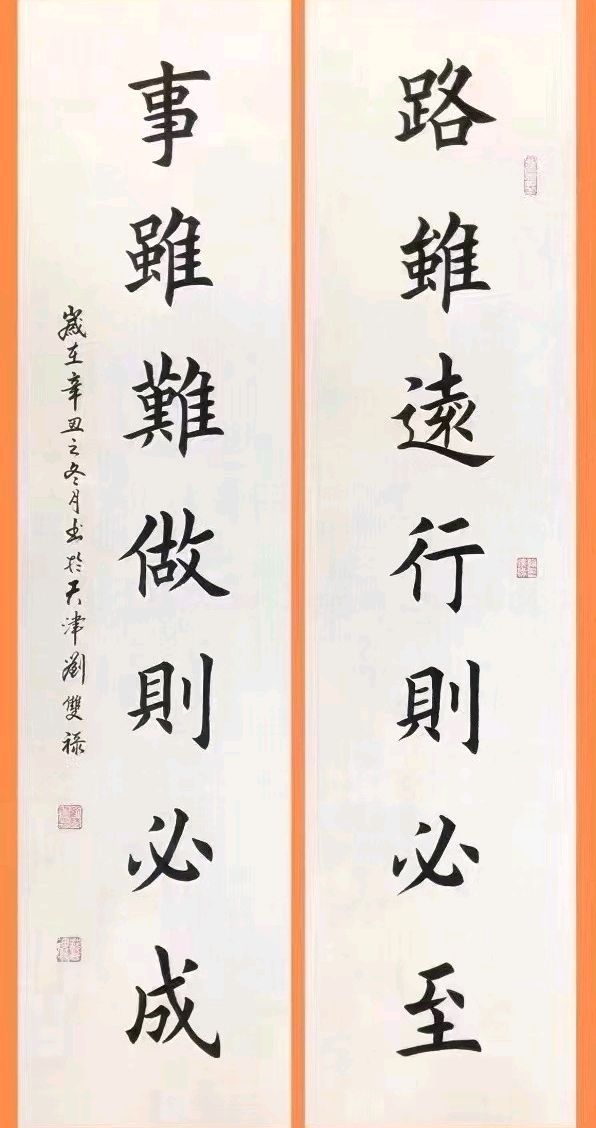 路雖遠行則必至
事雖難做則必成
歲在辛丑之冬月书於天津劉雙祿